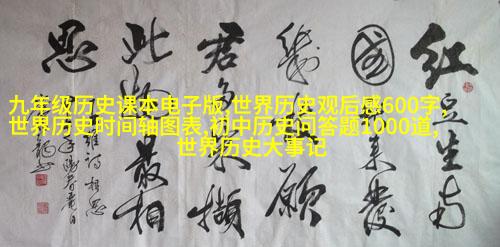 九年级历史课本电子版,世界历史观后感600字,
世界历史时间轴图表,初中历史问答题1000道,
世界历史大事记
红豆生南
國春来發
幾枝願
君多采撷
此物最相
思